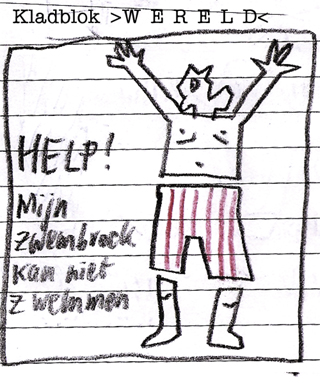 Kladblok >W E R E L D<
HELP!
Mijn
Zwembroek
kan niet
Zwemmen